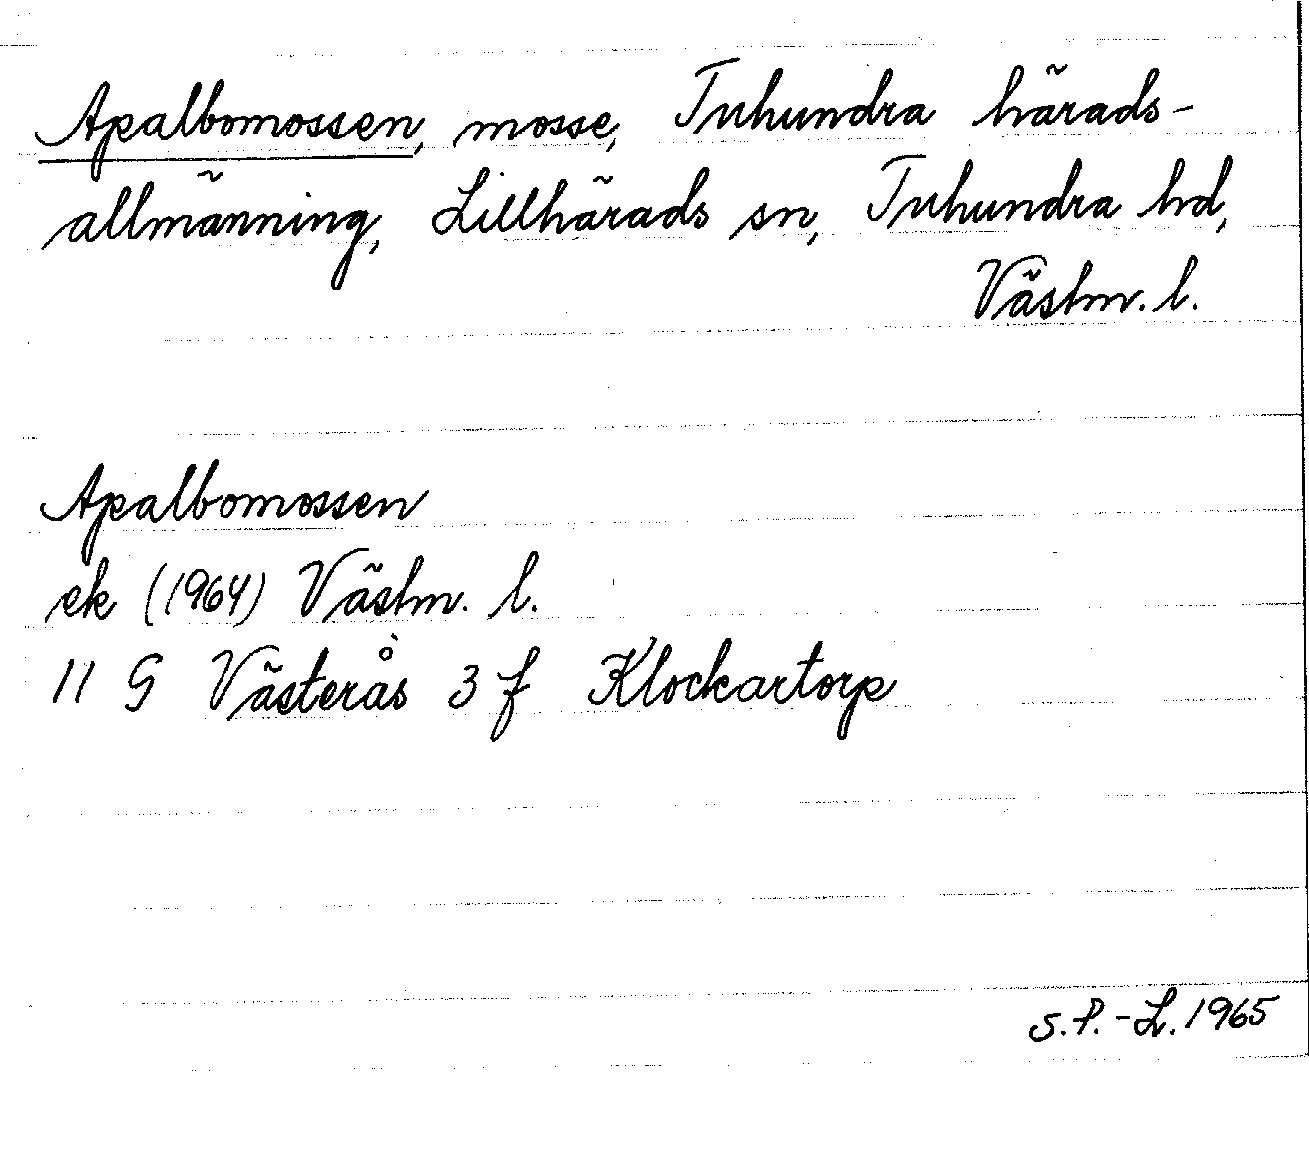 Apalbomossen, mosse, Tuhundra härads-
allmänning, Lillhärads sn, Tuhundra hd,
Västm. l.
Apalbomossen
ek (1964) Västm. l.
11 G Västerås 3 f Klockartorp
S.P.-L. 1965